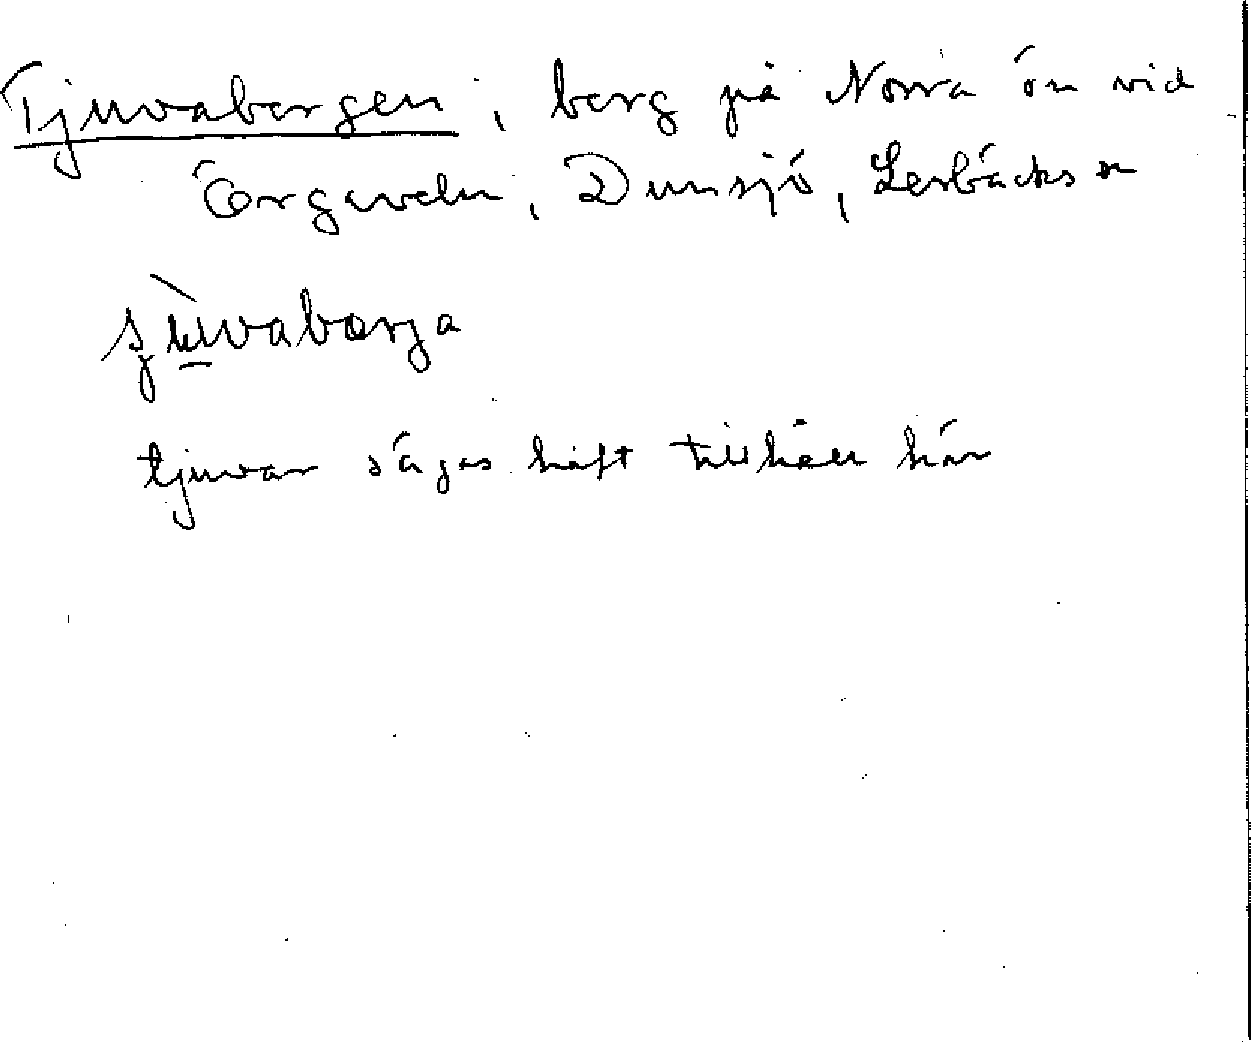 Tjuvabergen, berg på Norra ön vid
Örgaveln, Dunsjö, Lerbäcks sn
tjuvar sägas haft tillhåll här